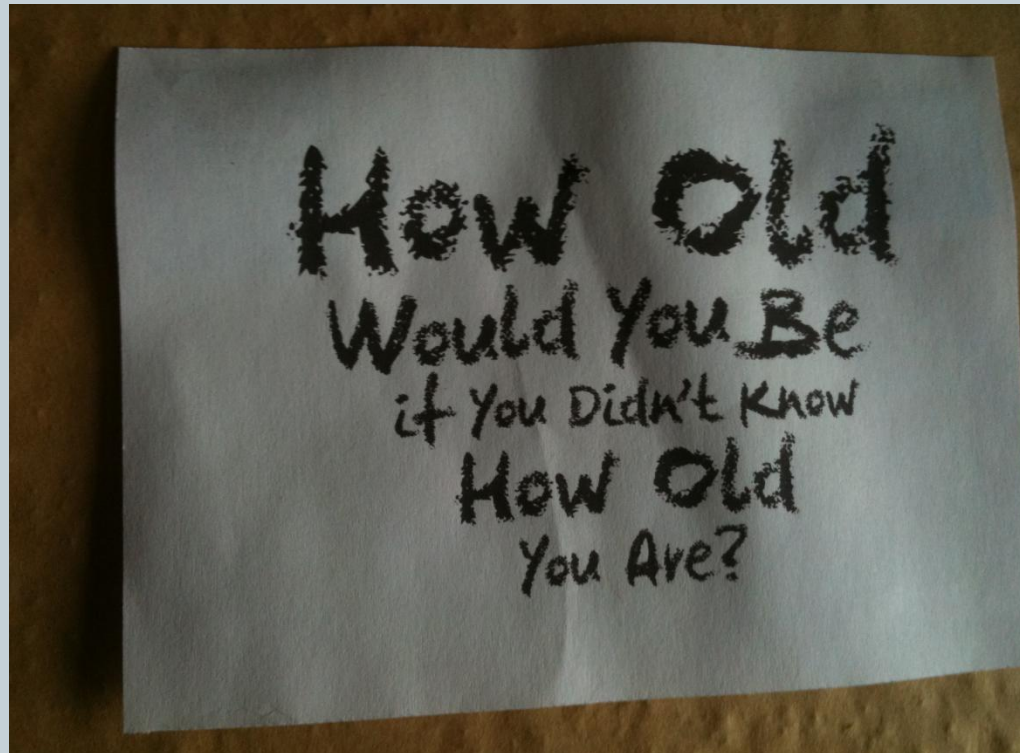 How Old
Would You Be
if You Didn't Know
How Old
You Are?